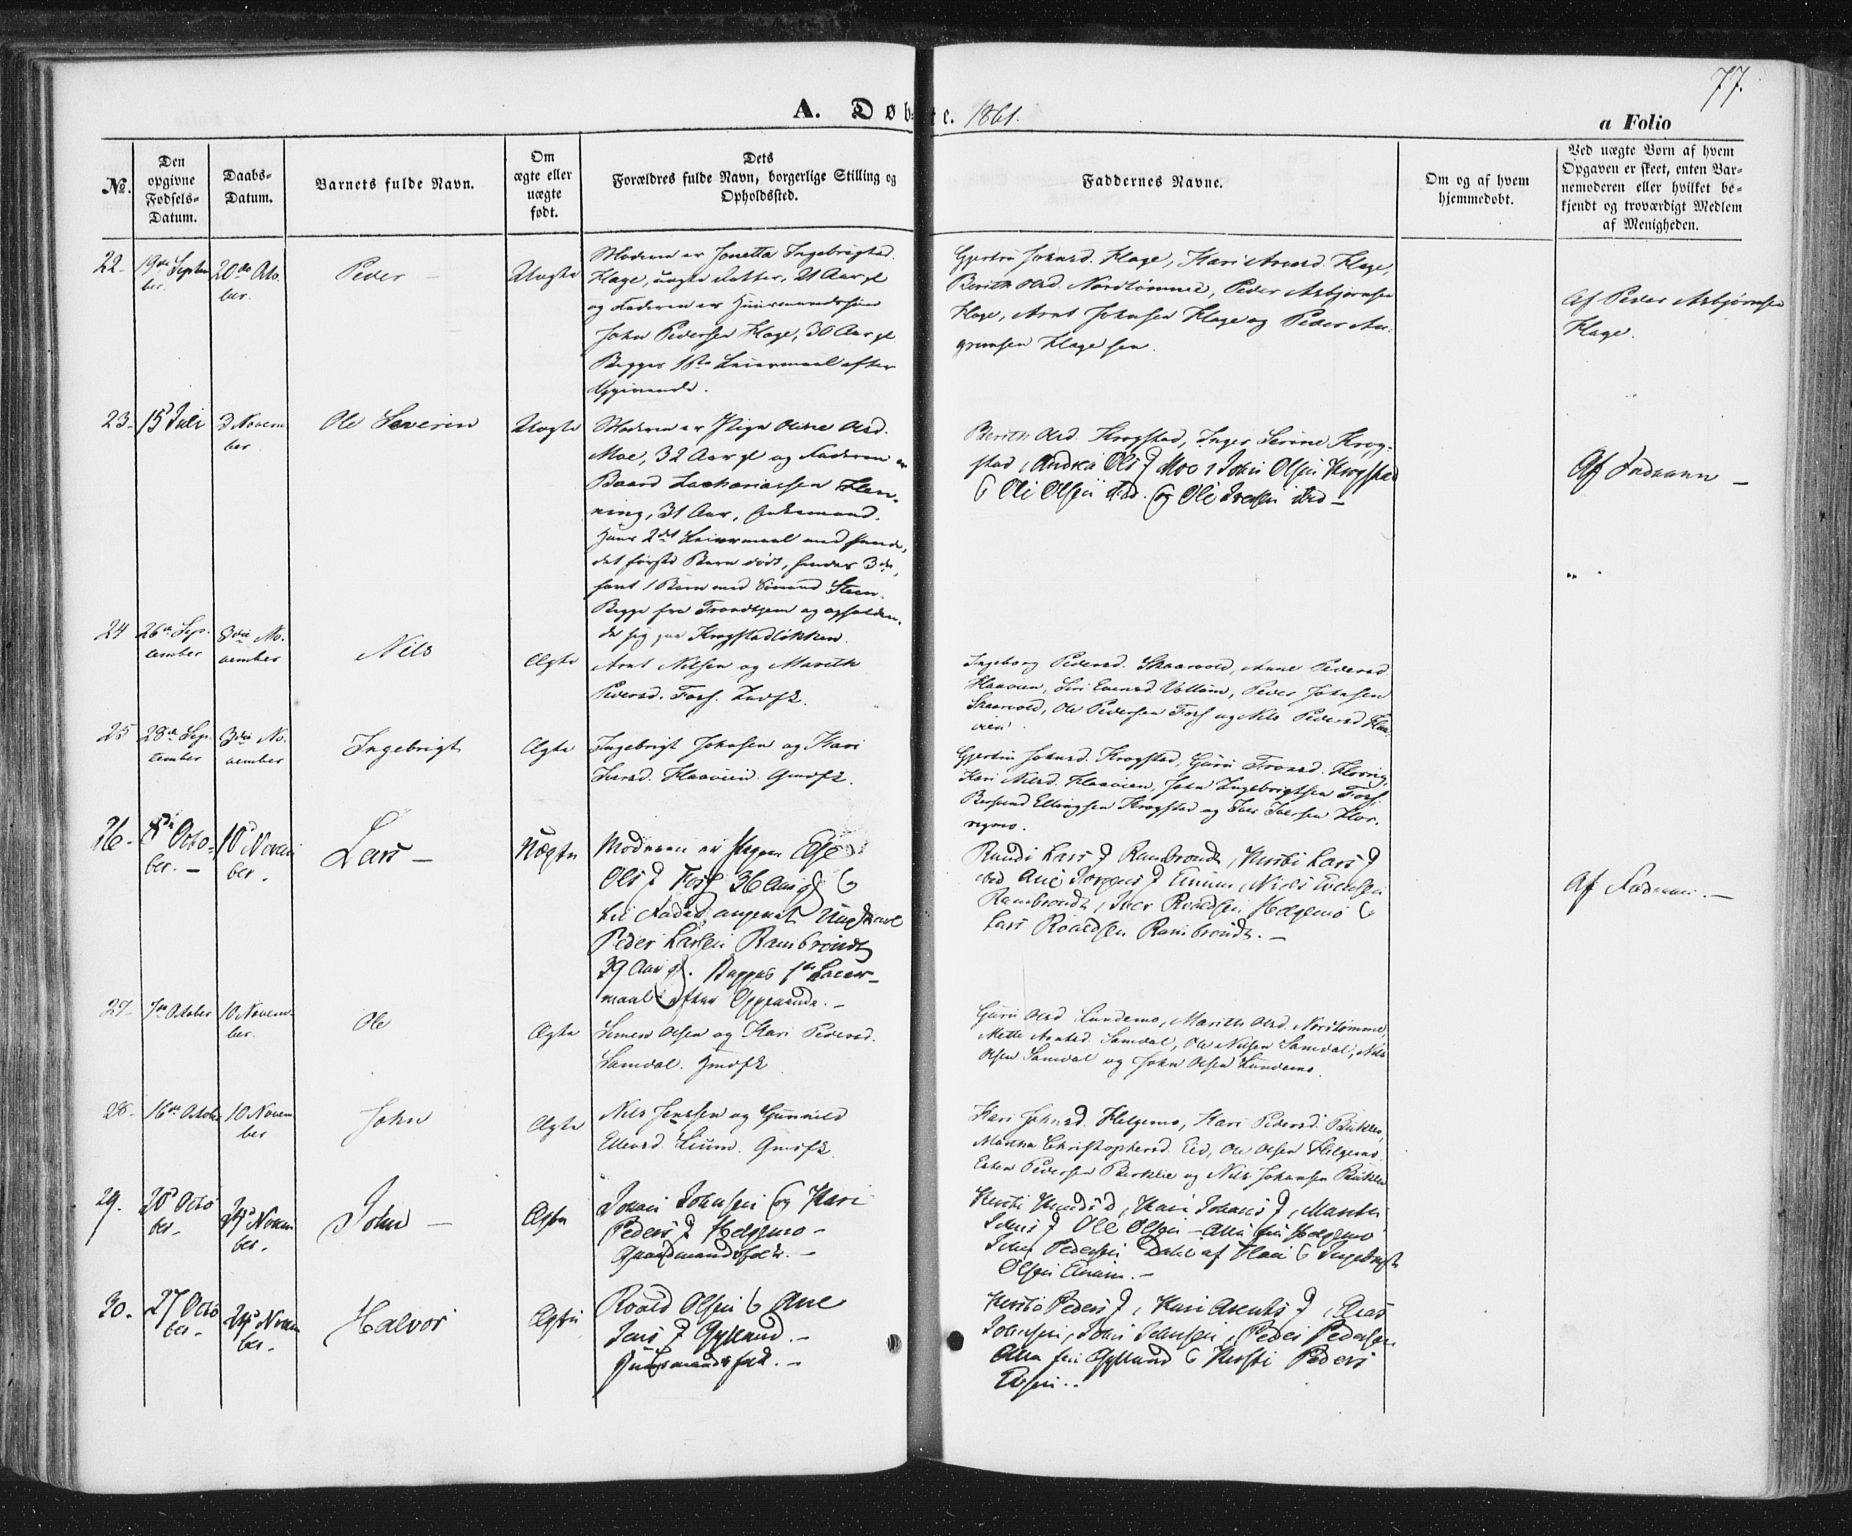 77.
A. Døbte. 1861.
a Folio
No.
Den opgivne Fødsels-Datum.
Daabs-Datum.
Barnets fulde Navn.
Om ægte eller uægte født.
Dets Forældres fulde Navn, borgerlige Stilling og Opholdssted.
Faddernes Navne.
Om og af hvem hjemmedøbt.
Ved uægte Børn af hvem Opgaven er skeet, enten Barnemoderen eller hvilket bekjendt og troværdigt Medlem af Menigheden.
22
19de Septem
ber.
20de Octo
ber.
Peder
Uægte
Moderen er Jonetta Ingebrigtsd.
Flage, uægte Datter, 21 Aar gl
og Faderen er Huusmandssøn
John Pedersen Flage, 30 Aar gl
Begges 1ste Leiermaal efter
Opgivende.
Gjertru Johnsd. Flage, Kari Arnsd. Flage,
Berith Olsd. Nordtømme, Peder Asbjørnsen
Flage, Arnt Johnsen Flage og Peder
Flage
Af Peder Asbjørnsen
Flage.
23
15 Juli
3 Novem
ber
Ole Severin
Uægte
Moderen er Pige Oline Olsd.
Moe, 32 Aar gl og Faderen er
Baard Zachariassen Flen-
ning, 31 Aar,
Hans 2det Leiermaal med hende,
det første Barn dødt, hendes 3die,
samt 1 Barn med Simund Steen.
Begge fra Trondhjem og ophol den-
de sig paa Krogstadløkken.
Berith Olsd. Krogstad, Inger Serine Krog-
stad, Andrea Olsd Moe, John Olsen Krogstad
Ole Olsen ibd. og Ole Iversen ibd
Af Faderen
24
26de Sep.
tember
3die No.
vember
Nils
Ægte
Arnt Nilsen og Marith
Pedersd. Fors. Indsk.
Ingeborg Pedersd. Skaarvold, Anne Pedersd
Haavien, Siri Evensd Volløien, Peder Johnsen
Skaarvold, Ole Pedersen Fors og Nils Pedersd Haa-
vien
25
28de Sep.
tember
3die No.
vember
Ingebrigt
Ægte
Ingebrigt Johnsen og Kari
Iversd. Haavien. Gmdfk.
Gjertru Johnsd. Krogstad, Guru
Kari Nilsd. Haavien, John Ingebrigtsen Fors,
Bersvend Ellingsen Krogstad og Iver Iversen
26
8de Octo-
ber.
10 Novem
ber.
Lars
Uægte
Moderen er Pigen
Olsd Fors 36 Aar gl
til Fader angivet Ungkarl
Peder Larsen Rambrondt
39 Aar gl. Begges 1ste Leier-
maal efter Opgivende.
Randi Larsd Rambrondt, Kirsti Larsd
ibd Ane Larsd Lium, Niels Evensen
Rambrondt, Iver Roaldsen Helgemo
Lars Roaldsen Rambrondt.
Af Faderen.
27
7de October
10 Novem
ber.
Ole
Ægte
Simen Olsen og Kari Pedersd.
Samdal. Hmdfk
Guru Olsd Lundemo, Marith Olsd. Nordtømme
Mette Arntsd. Samdal, Ole Nilsen Samdal, Nils
Olsen Samdal og John Olsen Lundemo
28
16de Octobr
10 Novem
ber
John
Ægte
Nils Jenssen og Gunnild
Ellevsd. Lium. Gmdfk
Kari Johnsd. Helgemo, Kari Pedersd.
Martha Christophersd. Eid, Ole Olsen Helgemo.
Esten Pedersen og Nils Johansen
29.
20 Octo
ber
24 Novem
ber.
John
Ægte
Johan Johnsen og Kari
Pedersd Helgemo
Gaardmandsfolk.
Kirsti, Kari Johansd, Marthe
Johnsd Ole Olsen - Alle fra Helgemo
John Pedersen Dahl af Flaa Ingebrigt
Olsen
30.
27 Octo
ber
24 Novem
ber.
Halvor
Ægte
Roald Olsen Ane
Larsd Gylland.
Huusmandsfolk.
Kirsti Pedersd, Kari Arentsd, Elias
Johnsen, John Johnsen, Peder Pedersen
Alle fra Gylland Kirsti Peders